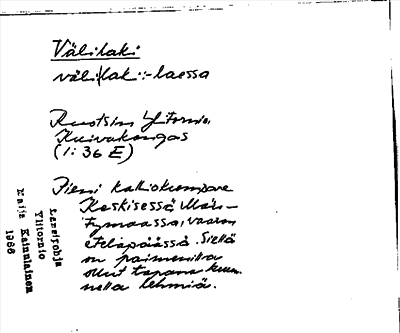 Välilaki
väli/lak :-laessa
Ruotsin Ylitornio,
Kuivakangas
(1: 36 E)
Pieni kalliokumpare
Keskisessä Män-
tymaassa, vaaran
eteläpäässä. Siellä
on paimenilla
ollut tapana kuun-
nella lehmiä.
Lansipohja
Ylitornio
Maija Kainulainen
1966